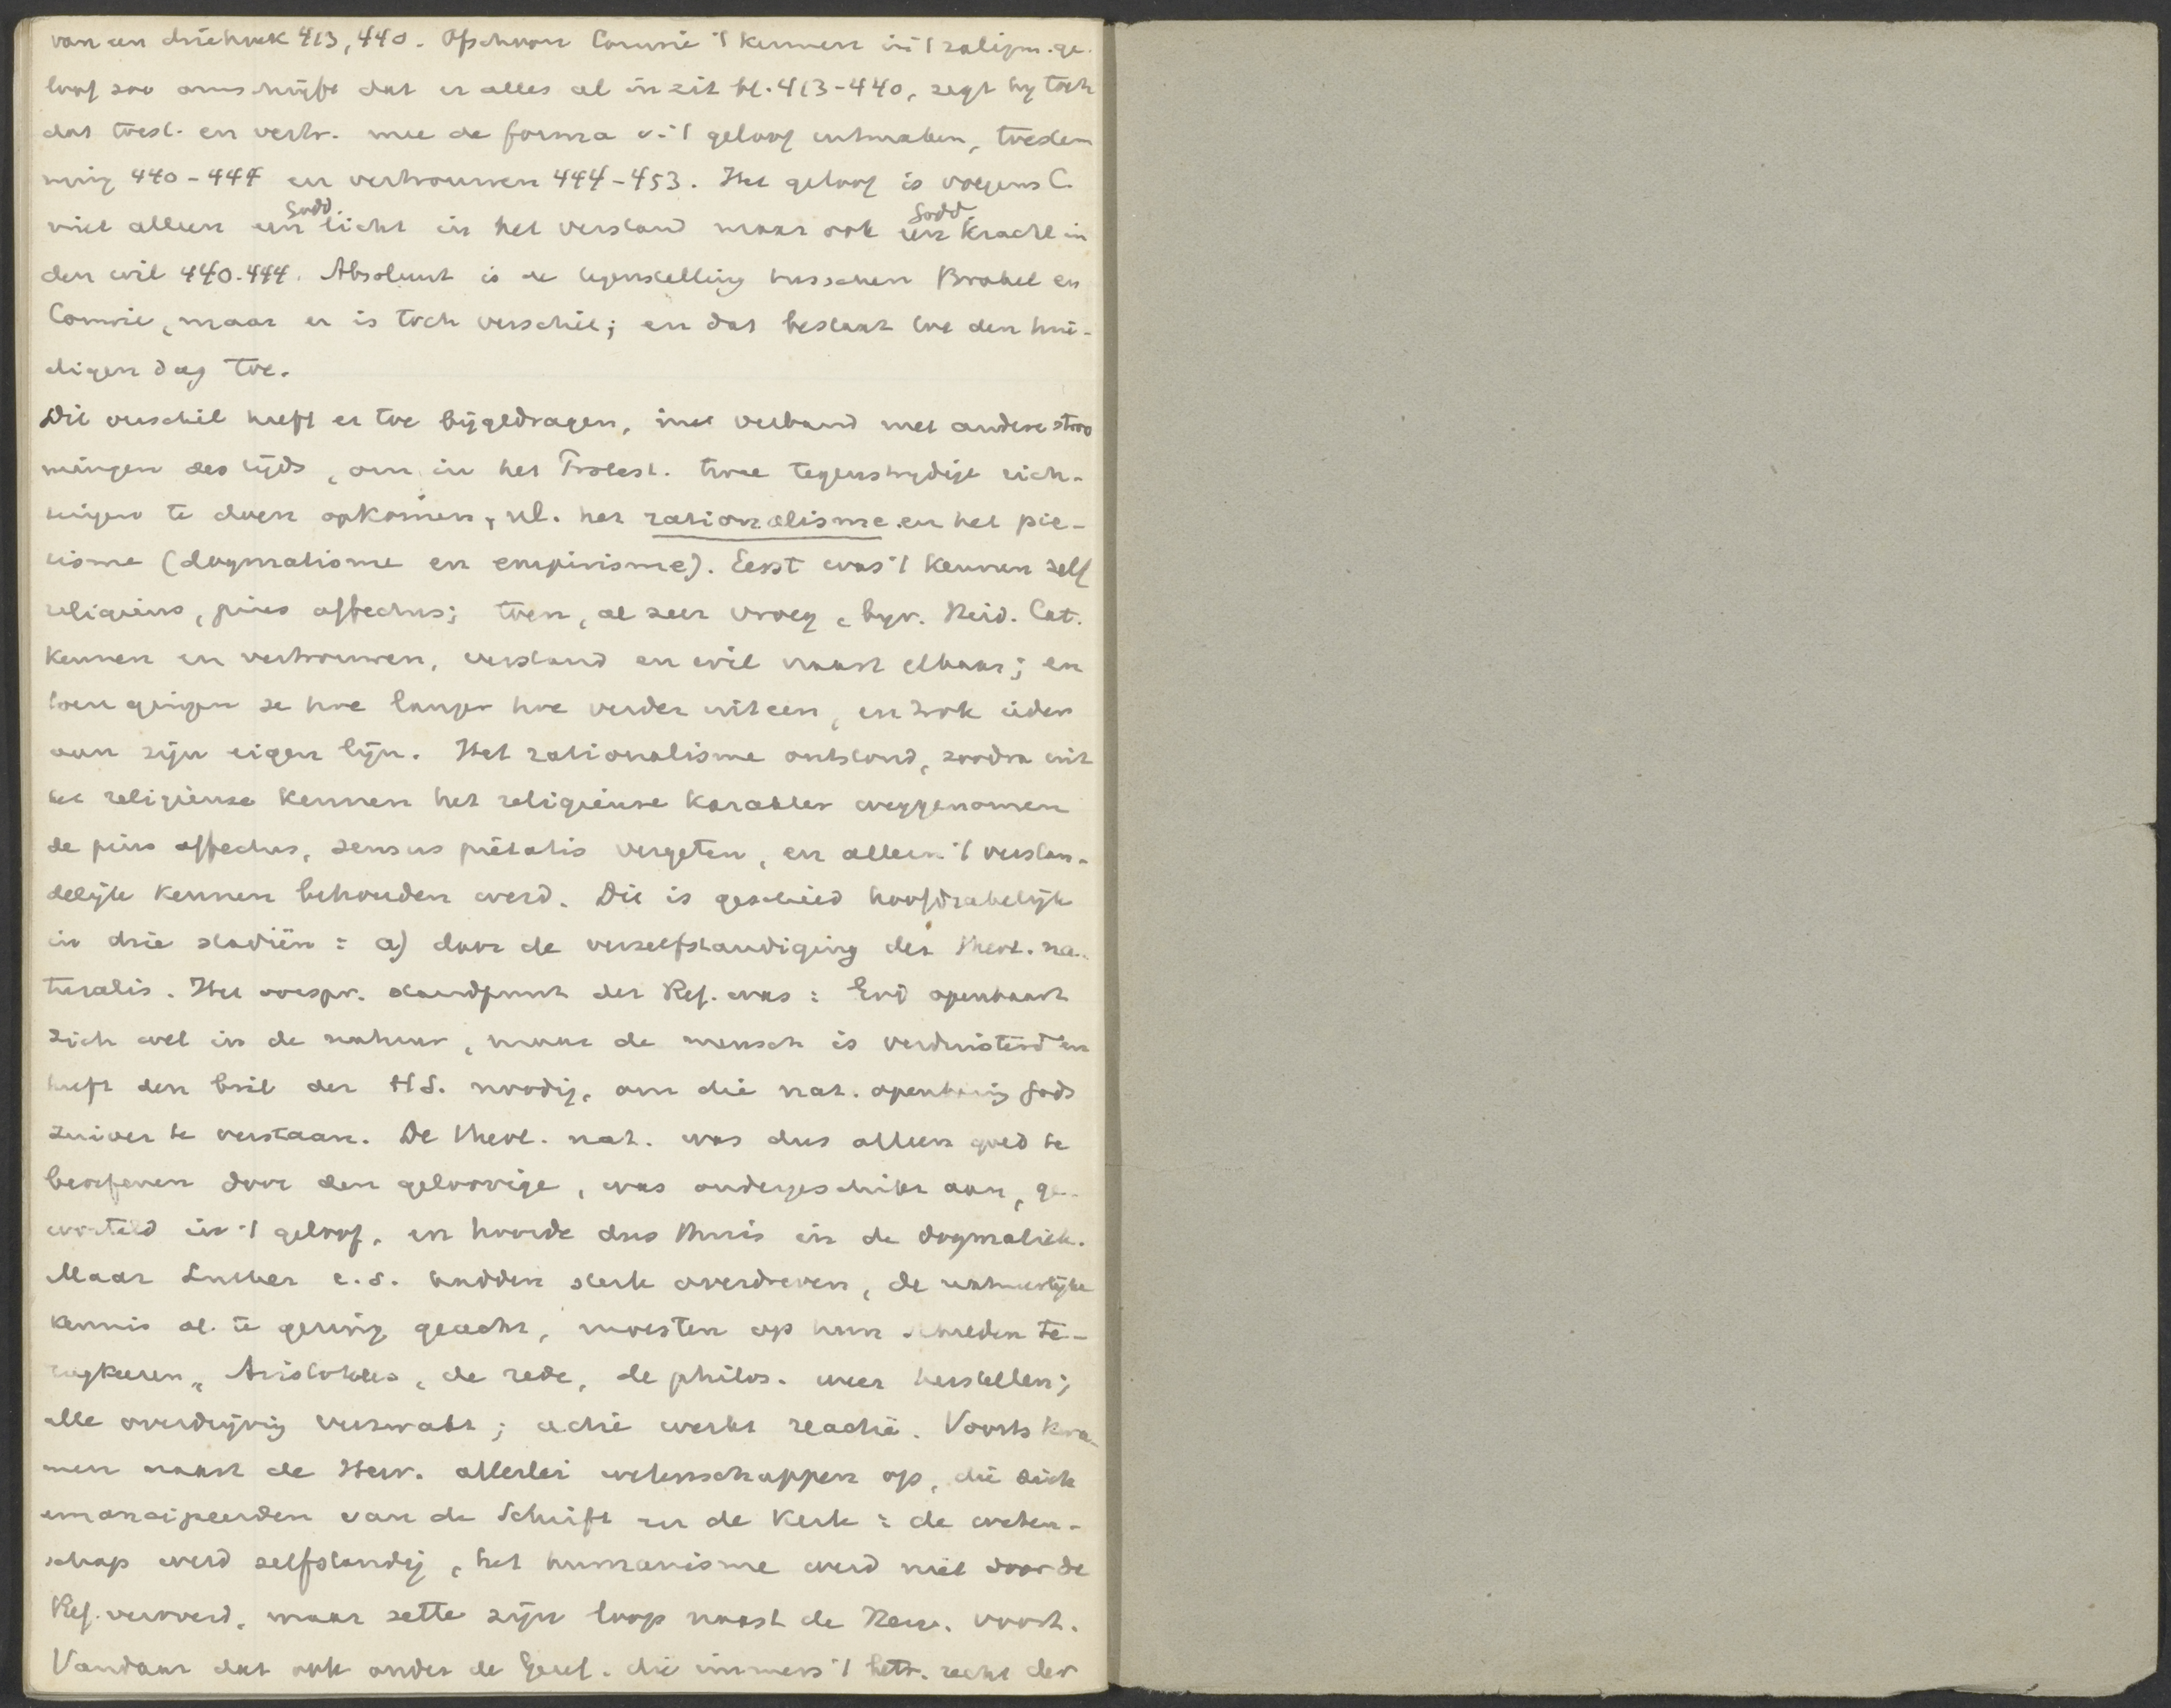 van een driehoek 413, 440. Ofschoon Comrie 't kennen in 't zaligm. ge-
loof zoo omschrijft dat er alles al in zit bl. 413-440, zegt hy toch
dat toest. en vertr. mee de forma v. 't geloof uitmaken, toestem
ming 440-444 en vertrouwen 444-453. Het geloof is volgens C.
niet alleen een Godd. licht in het verstand maar ook een Godd. kracht in
den wil 440.444. Absoluut is de tegenstelling tusschen Brakel en
Comrie, maar er is toch verschil; en dat bestaat toe den hui-
digen dag toe.
Dit verschil heeft er toe bijgedragen, in verband met andere stroo
mingen des tijds, om in het Protest. twee tegenstrydige rich-
tingen te doen opkomen, nl. het rationalisme en het pie-
tisme (dogmatisme en empirisme). Eerst was 't kennen zelf
religieus, pius affectus; toen, al zeer vroeg, byv. Heid. Cat.
kennen en vertrouwen, verstand en wil naast elkaar; en
toen gingen ze hoe langer hoe verder uiteen, en trok ieder
aan zijn eigen lijn. Het rationalisme ontstond, zoodra uit
het religieuse kennen het religieuse karakter weggenomen
de pius affectus, sensus piëtatis vergeten, en alleen 't verstan-
delijk kennen behouden werd. Dit is geschied hoofdzakelijk
in drie stadiën: a) door de verzelfstandiging der theol. na-
turalis. Het oorspr. standpunt der Ref. was: God openbaart
zich wel in de natuur, maar de mensch is verduisterd en
heeft den bril der H.S. noodig, om die nat. openbaring Gods
zuiver te verstaan. De theol. nat. was dus alleen goed te
beoefenen door den geloovige, was ondergeschikt aan, ge-
worteld in 't geloof, en hoorde dus thuis in de dogmatiek.
Maar Luther e.s. hadden sterk overdreven, de natuurlijke
kennis al te gering geacht, moesten op hun schreden te-
rugkeeren, Aristoteles, de rede, de philos. weer herstellen;
alle overdrijving verzwakt; actie werkt reactie. Voorts kwa-
men naast de Herv. allerlei wetenschappen op, die zich
emancipeerden van de Schrift en de Kerk: de weten-
schap werd zelfstandig, het humanisme werd niet door de
Ref. veroverd, maar zette zijn loop naast de Herv. voort.
Vandaar dat ook onder de Geref. die immers 't betr. recht der